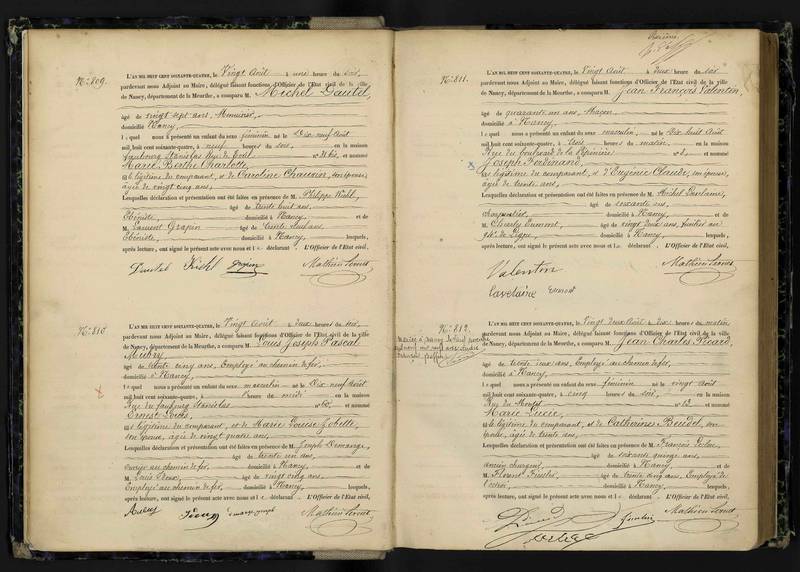 N° 809.
L'AN MIL HUIT CENT SOIXANTE-QUATRE, le Vingt Août à une heure du soir,
pardevant nous Adjoint au Maire, délégué faisant fonctions d'Officier de l'Etat civil de la ville
de Nancy, département de la Meurthe, a comparu M. Michel Dautel,
âgé de vingt sept ans, Menuisier,
domicilié à Nancy,
lequel nous a présenté un enfant du sexe féminin né le Dix neuf Août
mil huit cent soixante-quatre, à neuf heures du soir, en la maison
faubourg Stanislas et nommé
Marie Berthe Charlotte,
fille légitime du comparant, et de Caroline Chauvin, son épouse,
âgée de vingt cinq ans,
Lesquelles déclaration et présentation ont été faites en présence de M. Philippe Kiehl,
âgé de trente huit ans,
Ebéniste, domicilié à Nancy, et de
M. Laurent Grapin âgé de trente neuf ans,
Ebéniste, domicilié à Nancy, lesquels,
après lecture, ont signé le présent acte avec nous et le déclarant. L'Officier de l'Etat civil,
Dautel Kiehl Grapin
N° 810
L'AN MIL HUIT CENT SOIXANTE-QUATRE, le Vingt Août à deux heures du soir,
pardevant nous Adjoint au Maire, délégué faisant fonctions d'Officier de l'Etat civil de la ville
de Nancy, département de la Meurthe, a comparu M. Louis Joseph Pascal
Aubry
âgé de trente cinq ans, Employé au chemin de fer,
domicilié à Nancy,
lequel nous a présenté un enfant du sexe masculin né le Dix neuf Août
mil huit cent soixante-quatre, à heure du midi en la maison
Rue du faubourg Stanislas N° et nommé
Ernest Louis
fils légitime du comparant, et de Marie Louise
son épouse, âgée de vingt quatre ans,
Lesquelles déclaration et présentation ont été faites en présence de M. Joseph Demange,
âgé de trente un ans,
ouvrier au chemin de fer, domicilié à Nancy, et de
M. Louis âgé de vingt cinq ans,
Employé au chemin de fer, domicilié à Nancy, lesquels,
après lecture, ont signé le présent acte avec nous et le déclarant. L'Officier de l'Etat civil,
Aubry
N° 811.
L'AN MIL HUIT CENT SOIXANTE-QUATRE, le Vingt Août à deux heures du soir
pardevant nous Adjoint au Maire, délégué faisant fonctions d'Officier de l'Etat civil de la ville
de Nancy, département de la Meurthe, a comparu M. Jean François Valentin,
âgé de quarante un ans, Maçon
domicilié à Nancy,
lequel nous a présenté un enfant du sexe masculin, né le Dix huit Août
mil huit cent soixante-quatre, à trois heures du matin, en la maison
Rue du boulevard de la Pépinière N° et nommé
Joseph Ferdinand,
fils légitime du comparant, et d'Eugénie Claude, son épouse,
âgée de trente ans,
Lesquelles déclaration et présentation ont été faites en présence de M. Michel Lavelaine,
âgé de soixante ans,
charpentier, domicilié à Nancy, et de
M. Charles âgé de vingt deux ans,
domicilié à Nancy, lesquels,
après lecture, ont signé le présent acte avec nous et le déclarant. L'Officier de l'Etat civil,
Valentin
Lavelaine
N° 812.
L'AN MIL HUIT CENT SOIXANTE-QUATRE, le Vingt deux Août à dix heures du matin
pardevant nous Adjoint au Maire, délégué faisant fonctions d'Officier de l'Etat civil de la ville
de Nancy, département de la Meurthe, a comparu M. Jean Charles Picard,
âgé de trente deux ans, Employé au chemin de fer,
domicilié à Nancy,
lequel nous a présenté un enfant du sexe féminin né le vingt Août
mil huit cent soixante-quatre, à cinq heures du soir, en la maison
Rue de N° et nommé
Marie Lucie
fille légitime du comparant, et de Catherine son
épouse, âgée de trente ans,
Lesquelles déclaration et présentation ont été faites en présence de M. François
âgé de soixante quinze ans
domicilié à Nancy, et de
M. Florent âgé de trente cinq ans, Employé de
l'octroi, domicilié à Nancy, lesquels,
après lecture, ont signé le présent acte avec nous et le déclarant. L'Officier de l'Etat civil,